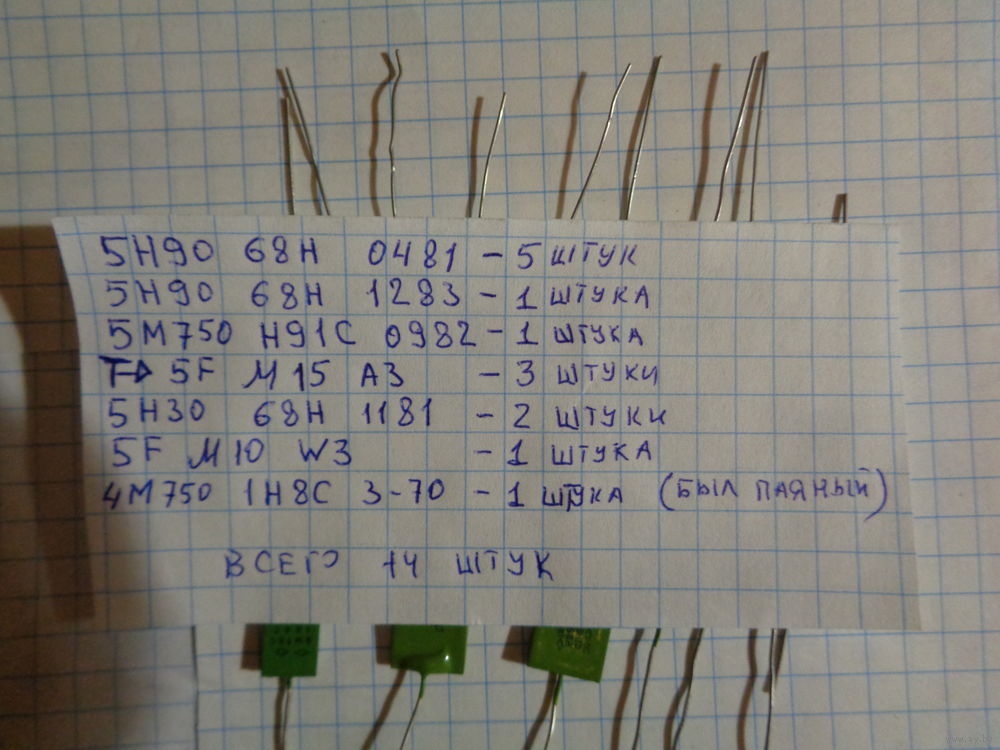 5Н90 68Н 0481 – 5 ШТУК
5Н90 68Н 1283 – 1 ШТУКА
5М750 Н91С 0982 – 1 ШТУКА
5F М15 А3 – 3 ШТУКИ
5Н30 68Н 1181 – 2 ШТУКИ
5F М10 W3 – 1 ШТУКА
4М750 1Н8С 3-70 – 1 ШТУКА (БЫЛ ПАЯНЫЙ)
ВСЕГО 14 ШТУК